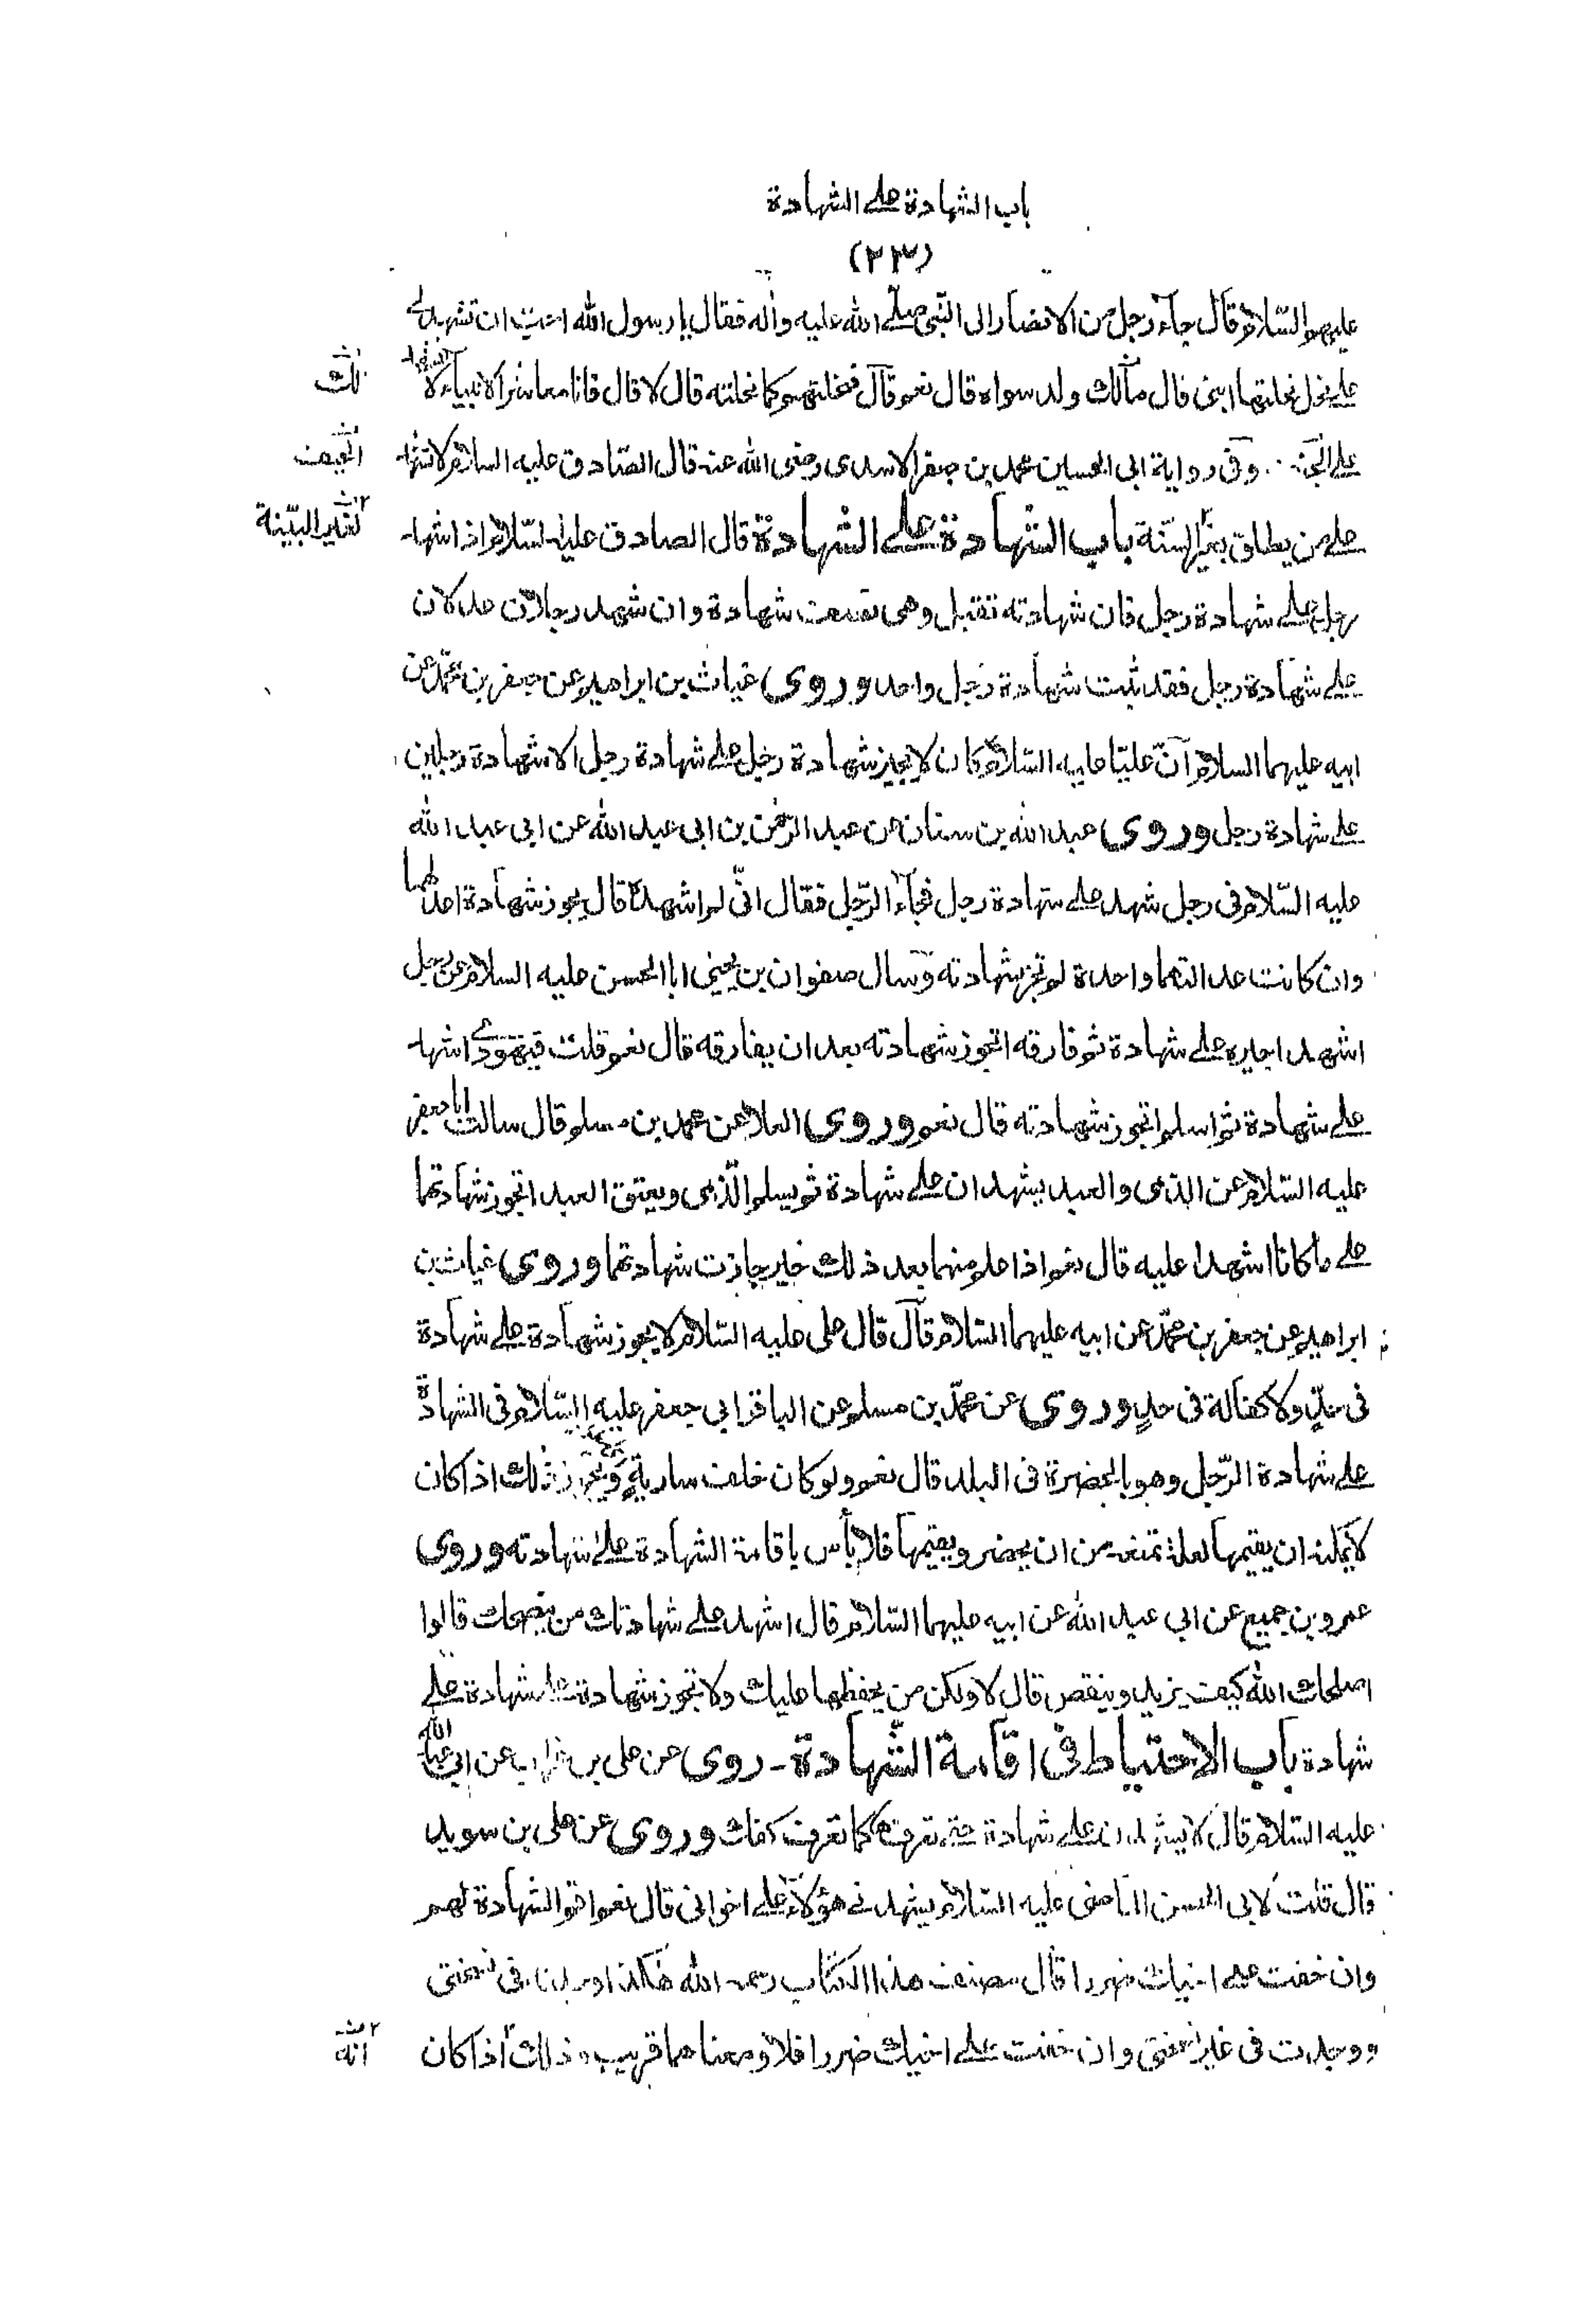 باب الشهادة علے الشهادة
(٢٣)
عليهم السلام قال جاء رجل من الانصار الى النبى صلے الله عليه واله فقال يا رسول الله احبت ان تشهد لے
علے نخل نحلتها ابنى قال مالك ولد سواه قال نعم قال فنحلتهم كما نحلته قال لا قال فانا معاشر الانبياء لا نشهد
لك
علے الجنف وفى رواية ابى الحسين محمد بن جعفر الاسدى رضى الله عنه قال الصادق عليه السلام لا تشهد
الحيف
علے من يطلق بغير السنة باب الشهادة علے الشهادة قال الصادق عليه السلام اذا شهد
لغير البينة
رجل علے شهادة رجل فان شهادته تقبل وهى نصف شهادة وان شهد رجلان عدلان
علے شهادة رجل فقد ثبت شهادة رجل واحد وروى غياث بن ابراهيم عن جعفر بن محمد عن
ابيه عليهما السلام ان عليّا عليه السلام كان لا يجيز شهادة رجل علے شهادة رجل الا شهادة رجلين
علے شهادة رجل وروى عبد الله بن سنان عن عبد الرحمن بن ابى عبد الله عن ابى عبد الله
عليه السلام فى رجل شهد علے شهادة رجل فجاء الرجل فقال انى لم اشهده قال يجوز شهادة اعدلهما
وان كانت عدالتهما واحدة لم تجز شهادته وسال صفوان بن يحيى ابا الحسن عليه السلام عن رجل
اشهد اجيره علے شهادة ثم فارقه اتجوز شهادته بعد ان يفارقه قال نعم قلت فيهودے اشهد
علے شهادة ثم اسلم اتجوز شهادته قال نعم وروى العلا عن محمد بن مسلم قال سالت ابا جعفر
عليه السلام عن الذمى والعبد يشهدان علے شهادة ثم يسلم الذمى ويعتق العبد اتجوز شهادتهما
علے ما كانا اشهدا عليه قال نعم اذا علم منهما بعد ذلك خير جازت شهادتهما وروى غياث بن
ابراهيم عن جعفر بن محمد عن ابيه عليهما السلام قال قال على عليه السلام لا يجوز شهادة علے شهادة
فى حدّ ولا كفالة فى حدٍ وروى عن محمد بن مسلم عن الباقر ابى جعفر عليه السلام فى الشهادة
علے شهادة الرجل وهو بالحضرة فى البلد قال نعم ولو كان خلف ساريةٍ ويجوز ذلك اذا كان
لا يمكنه ان يقيمها لعلة تمنعه من ان يحضر ويقيمها فلا بأس باقامة الشهادة علے شهادته وروى
عمرو بن جميع عن ابي عبد الله عن ابيه عليهما السلام قال اشهد علے شهادتك من ينصحك قالوا
اصلحك الله كيف يزيد وينقص قال لا ولكن من يحفظها عليك ولا تجوز شهادة علے شهادة علے
شهادة باب الاحتياط فى اقامة الشهادة ـ روى عن على بن غراب عن ابى عبد الله
عليه السلام قال لا تشهدن علے شهادة حتے تعرفها كما تعرف كفك وروى عن على بن سويد
قال قلت لابى الحسن الماضى عليه السلام يشهدنے هؤلاء علے اخوانى قال نعم اقم الشهادة لهم
وان خفت علے اخيك ضررا قال مصنف هذا الكتاب رحمه الله هكذا وجدته فى نسختى
ووجدت فى غير نسختى وان خفت علے اخيك ضررا فلا ومعناهما قريب وذلك اذا كان
انه